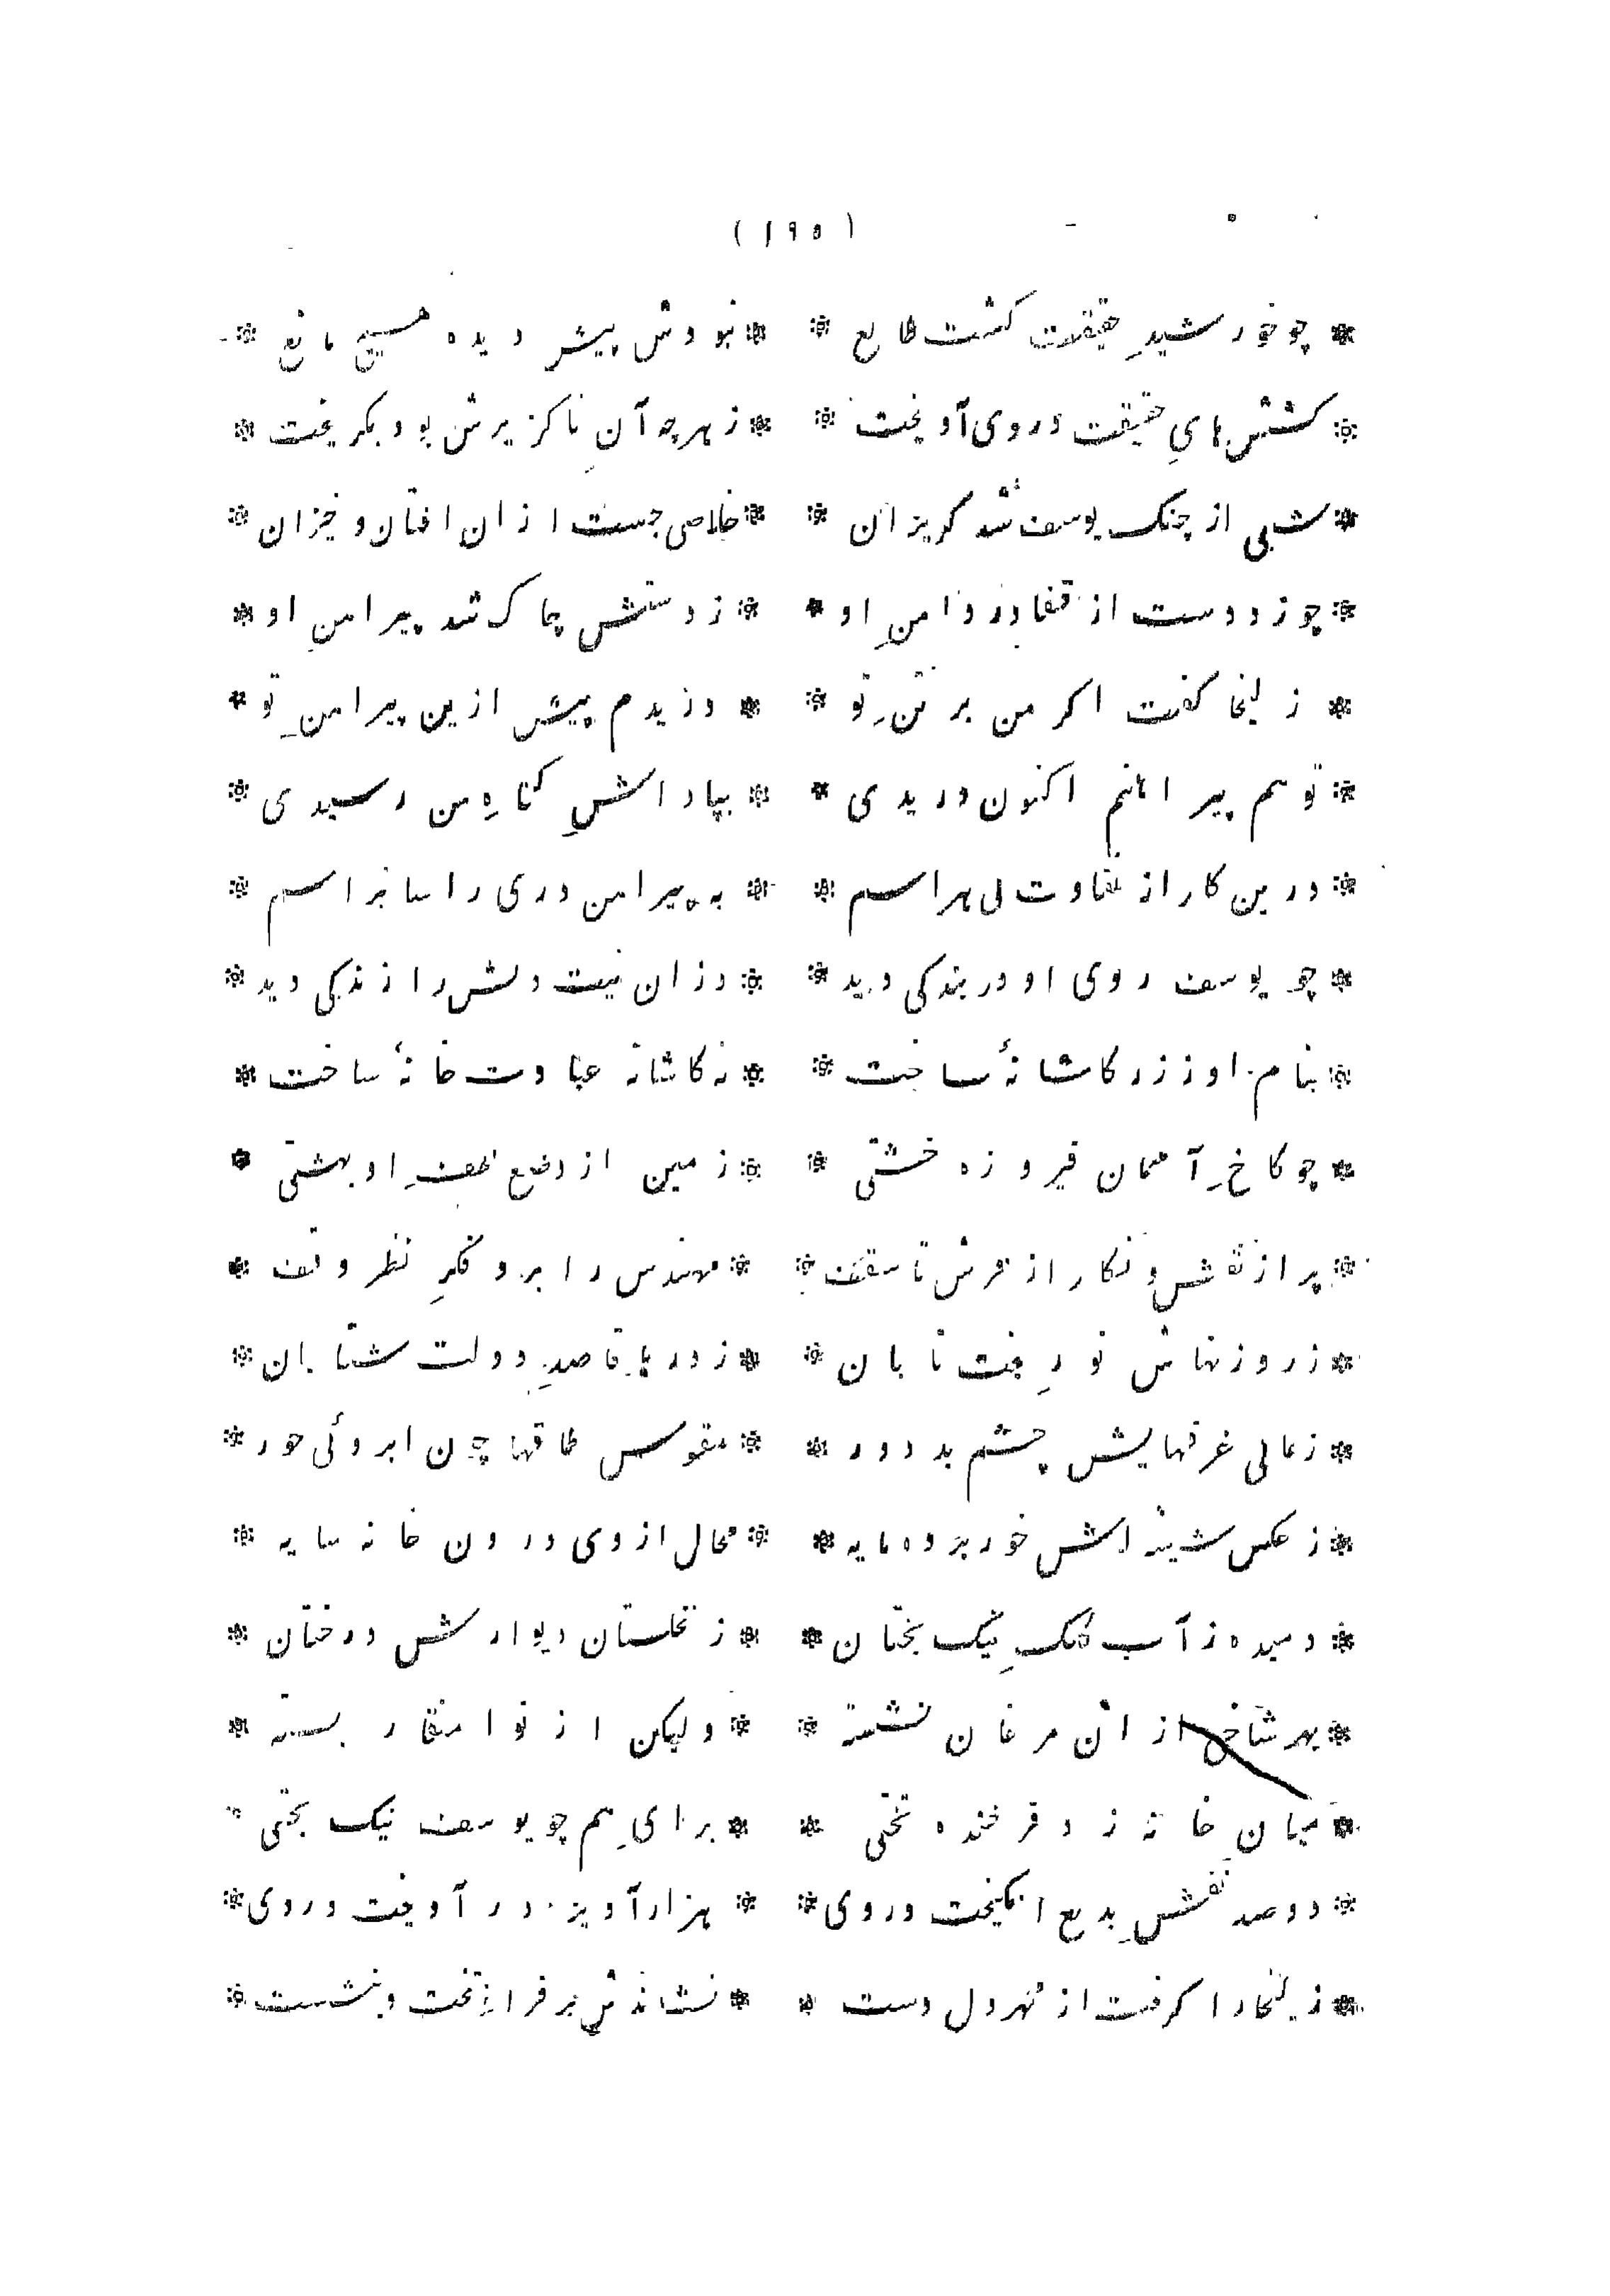 ( ١٩٥ )
* چو خورشیدِ حقیقت کشت طالع * * نبودش پیش دیده هیچ مانع *
* کششهایِ حقیقت در وی آویخت * * ز هر چه آن ناکزیرش بود بکریخت *
* شبی از چنک یوسف شد کریزان * * خلاصی جست ازان افتان و خیزان *
* چو زد دست از قفا در دامنِ او * * ز دستش چاک شد پیرامنِ او *
* زلیخا کفت اکر من بر تنِ تو * * دریدم پیش ازین پیرامنِ تو *
* تو هم پیراهنم اکنون دریدی * * بپاداشِ کناهِ من رسیدی *
* درین کار از تفاوت بی هراسم * * به پیرامن دری راسا براسم *
* چو یوسف روی او در بندکی دید * * وزان نیت دلش را زندکی دید *
* بنام او ز زر کاشانهٔ ساخت * * نه کاشانه عبادت خانهٔ ساخت *
* چو کاخِ آسمان فیروزه خشتی * * زمین از وضع لطفِ او بهشتی *
* پر از نقش و نکار از فرش تا سقف * * مهندس را برو فکرِ نظر وقف *
* ز روزنهاش نورِ بخت تابان * * ز درها قاصدِ دولت شتابان *
* ز عالی غرفهایش چشم بد دور * * مقوس طاقها چون ابروئی حور *
* ز عکس شیشه اش خور برده مایه * * محال از وی درون خانه سایه *
* دمیده ز آب کلکِ نیک بختان * * ز نخلستان دیوارش درختان *
* بهر شاخی از ان مرغان نشسته * * ولیکن از نوا منقار بسته *
* میانِ خانه زد فرخنده تختی * * برایِ هم چو یوسف نیک بختی *
* دو صد نقشِ بدیع انکیخت در وی * * هزار آویز در آویخت در وی *
* زلیخا را کرفت از مهر دل دست * * نشاندش بر فرازِ تخت و بنشست *